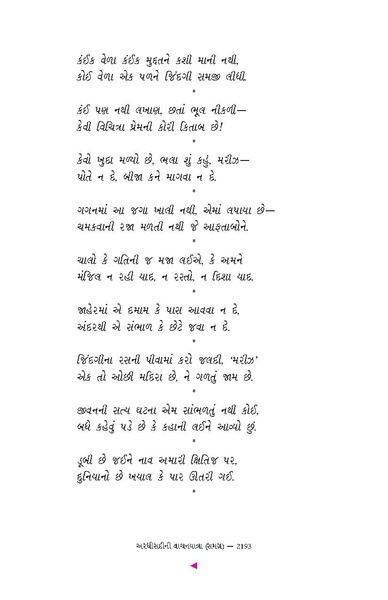 કંઈક વેળા કંઈક મુદ્દતને કશી માની નથી,
કોઈ વેળા એક પળને જિંદગી સમજી લીધી.
*
કંઈ પણ નથી લખાણ, છતાં ભૂલ નીકળી—
કેવી વિચિત્રા પ્રેમની કોરી કિતાબ છે!
*
કેવો ખુદા મળ્યો છે, ભલા શું કહું, મરીઝ—
પોતે ન દે, બીજા કને માગવા ન દે.
*
ગગનમાં આ જગા ખાલી નથી, એમાં લપાયા છે—
ચમકવાની રજા મળતી નથી જે આફતાબોને.
*
ચાલો કે ગતિની જ મજા લઈએ, કે અમને
મંજિલ ન રહી યાદ, ન રસ્તો, ન દિશા યાદ.
*
જાહેરમાં એ દમામ કે પાસ આવવા ન દે,
અંદરથી એ સંભાળ કે છેટે જવા ન દે.
*
જિંદગીના રસની પીવામાં કરો જલદી, ‘મરીઝ’
એક તો ઓછી મદિરા છે, ને ગળતું જામ છે.
*
જીવનની સત્ય ઘટના એમ સાંભળતું નથી કોઈ,
બધે કહેવું પડે છે કે કહાની લઈને આવ્યો છું.
*
ડૂબી છે જઈને નાવ અમારી ક્ષિતિજ પર,
દુનિયાનો છે ખયાલ કે પાર ઊતરી ગઈ.
*
અરધીસદીની વાચનયાત્રા (સમગ્ર) — 2193